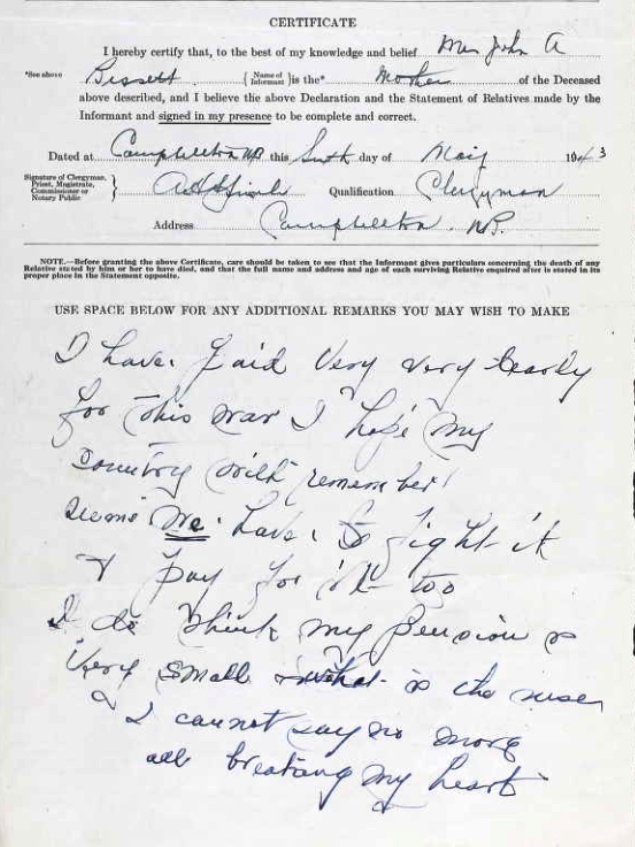 CERTIFICATE
I hereby certify that, to the best of my knowledge and belief Mrs John A
*See above Bissett { Name of Informant } is the* Mother of the Deceased
above described, and I believe the above Declaration and the Statement of Relatives made by the
Informant and signed in my presence to be complete and correct.
Dated at Campbellton NB this Sixth day of May 1943
Signature of Clergyman, Priest, Magistrate, Commissioner or Notary Public } Qualification Clergyman
Address Campbellton. NB.
NOTE.—Before granting the above Certificate, care should be taken to see that the Informant gives particulars concerning the death of any
Relative stated by him or her to have died, and that the full name and address and age of each surviving Relative enquired after is stated in its
proper place in the Statement opposite.
USE SPACE BELOW FOR ANY ADDITIONAL REMARKS YOU MAY WISH TO MAKE
I have paid very very dearly
for this war I hope my
country will remember
seems we have to fight it
& pay for it too
I do think my pension is
very small what is the use
I cannot say no more
all breaking my heart